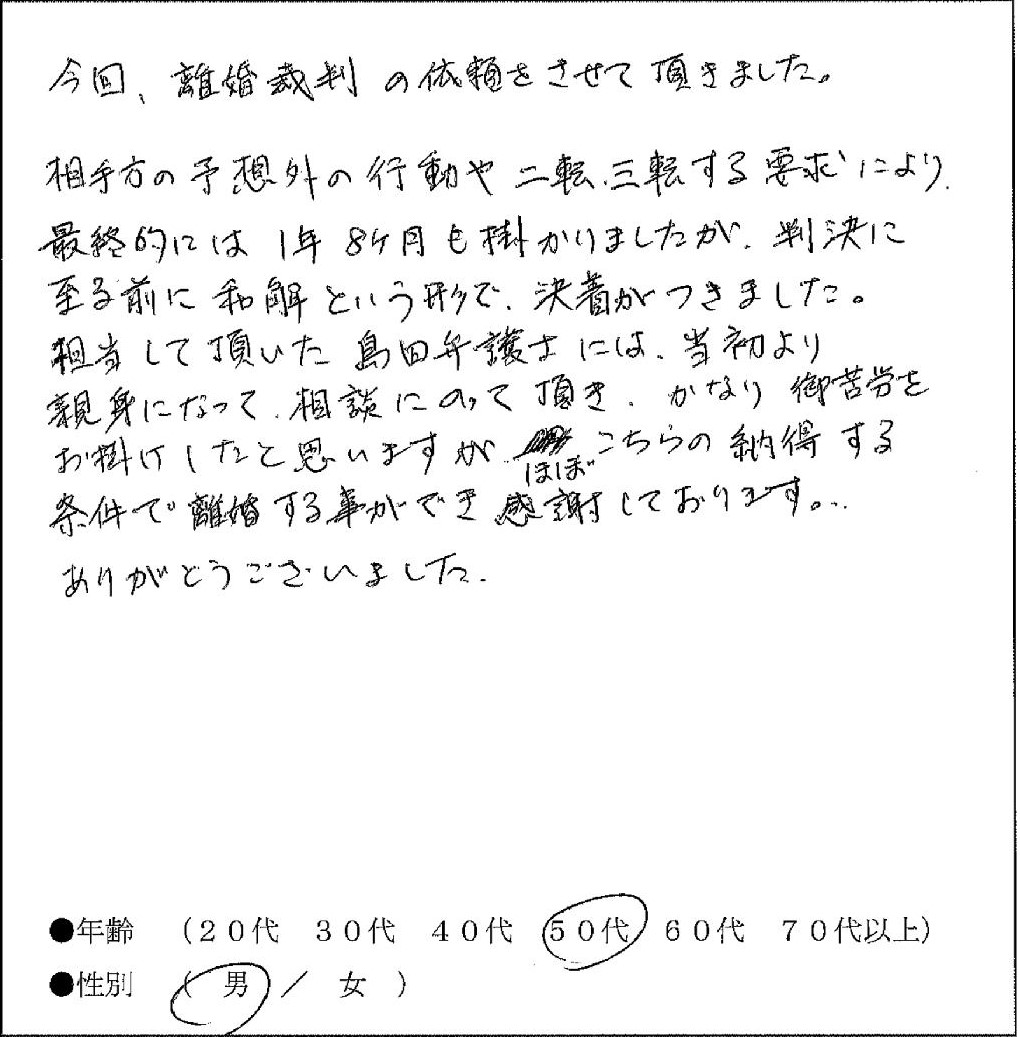 今回、離婚裁判の依頼をさせて頂きました。
相手方の予想外の行動や二転、三転する要求により、
最終的には1年8ヶ月も掛かりましたが、判決に
至る前に和解という形で、決着がつきました。
担当して頂いた島田弁護士には、当初より
親身になって、相談にのって頂き、かなり御苦労を
お掛けしたと思いますが、ほぼこちらの納得する
条件で離婚する事ができ感謝しております。
ありがとうございました。
●年齢 (20代 30代 40代 50代 60代 70代以上)
●性別 ( 男 / 女 )